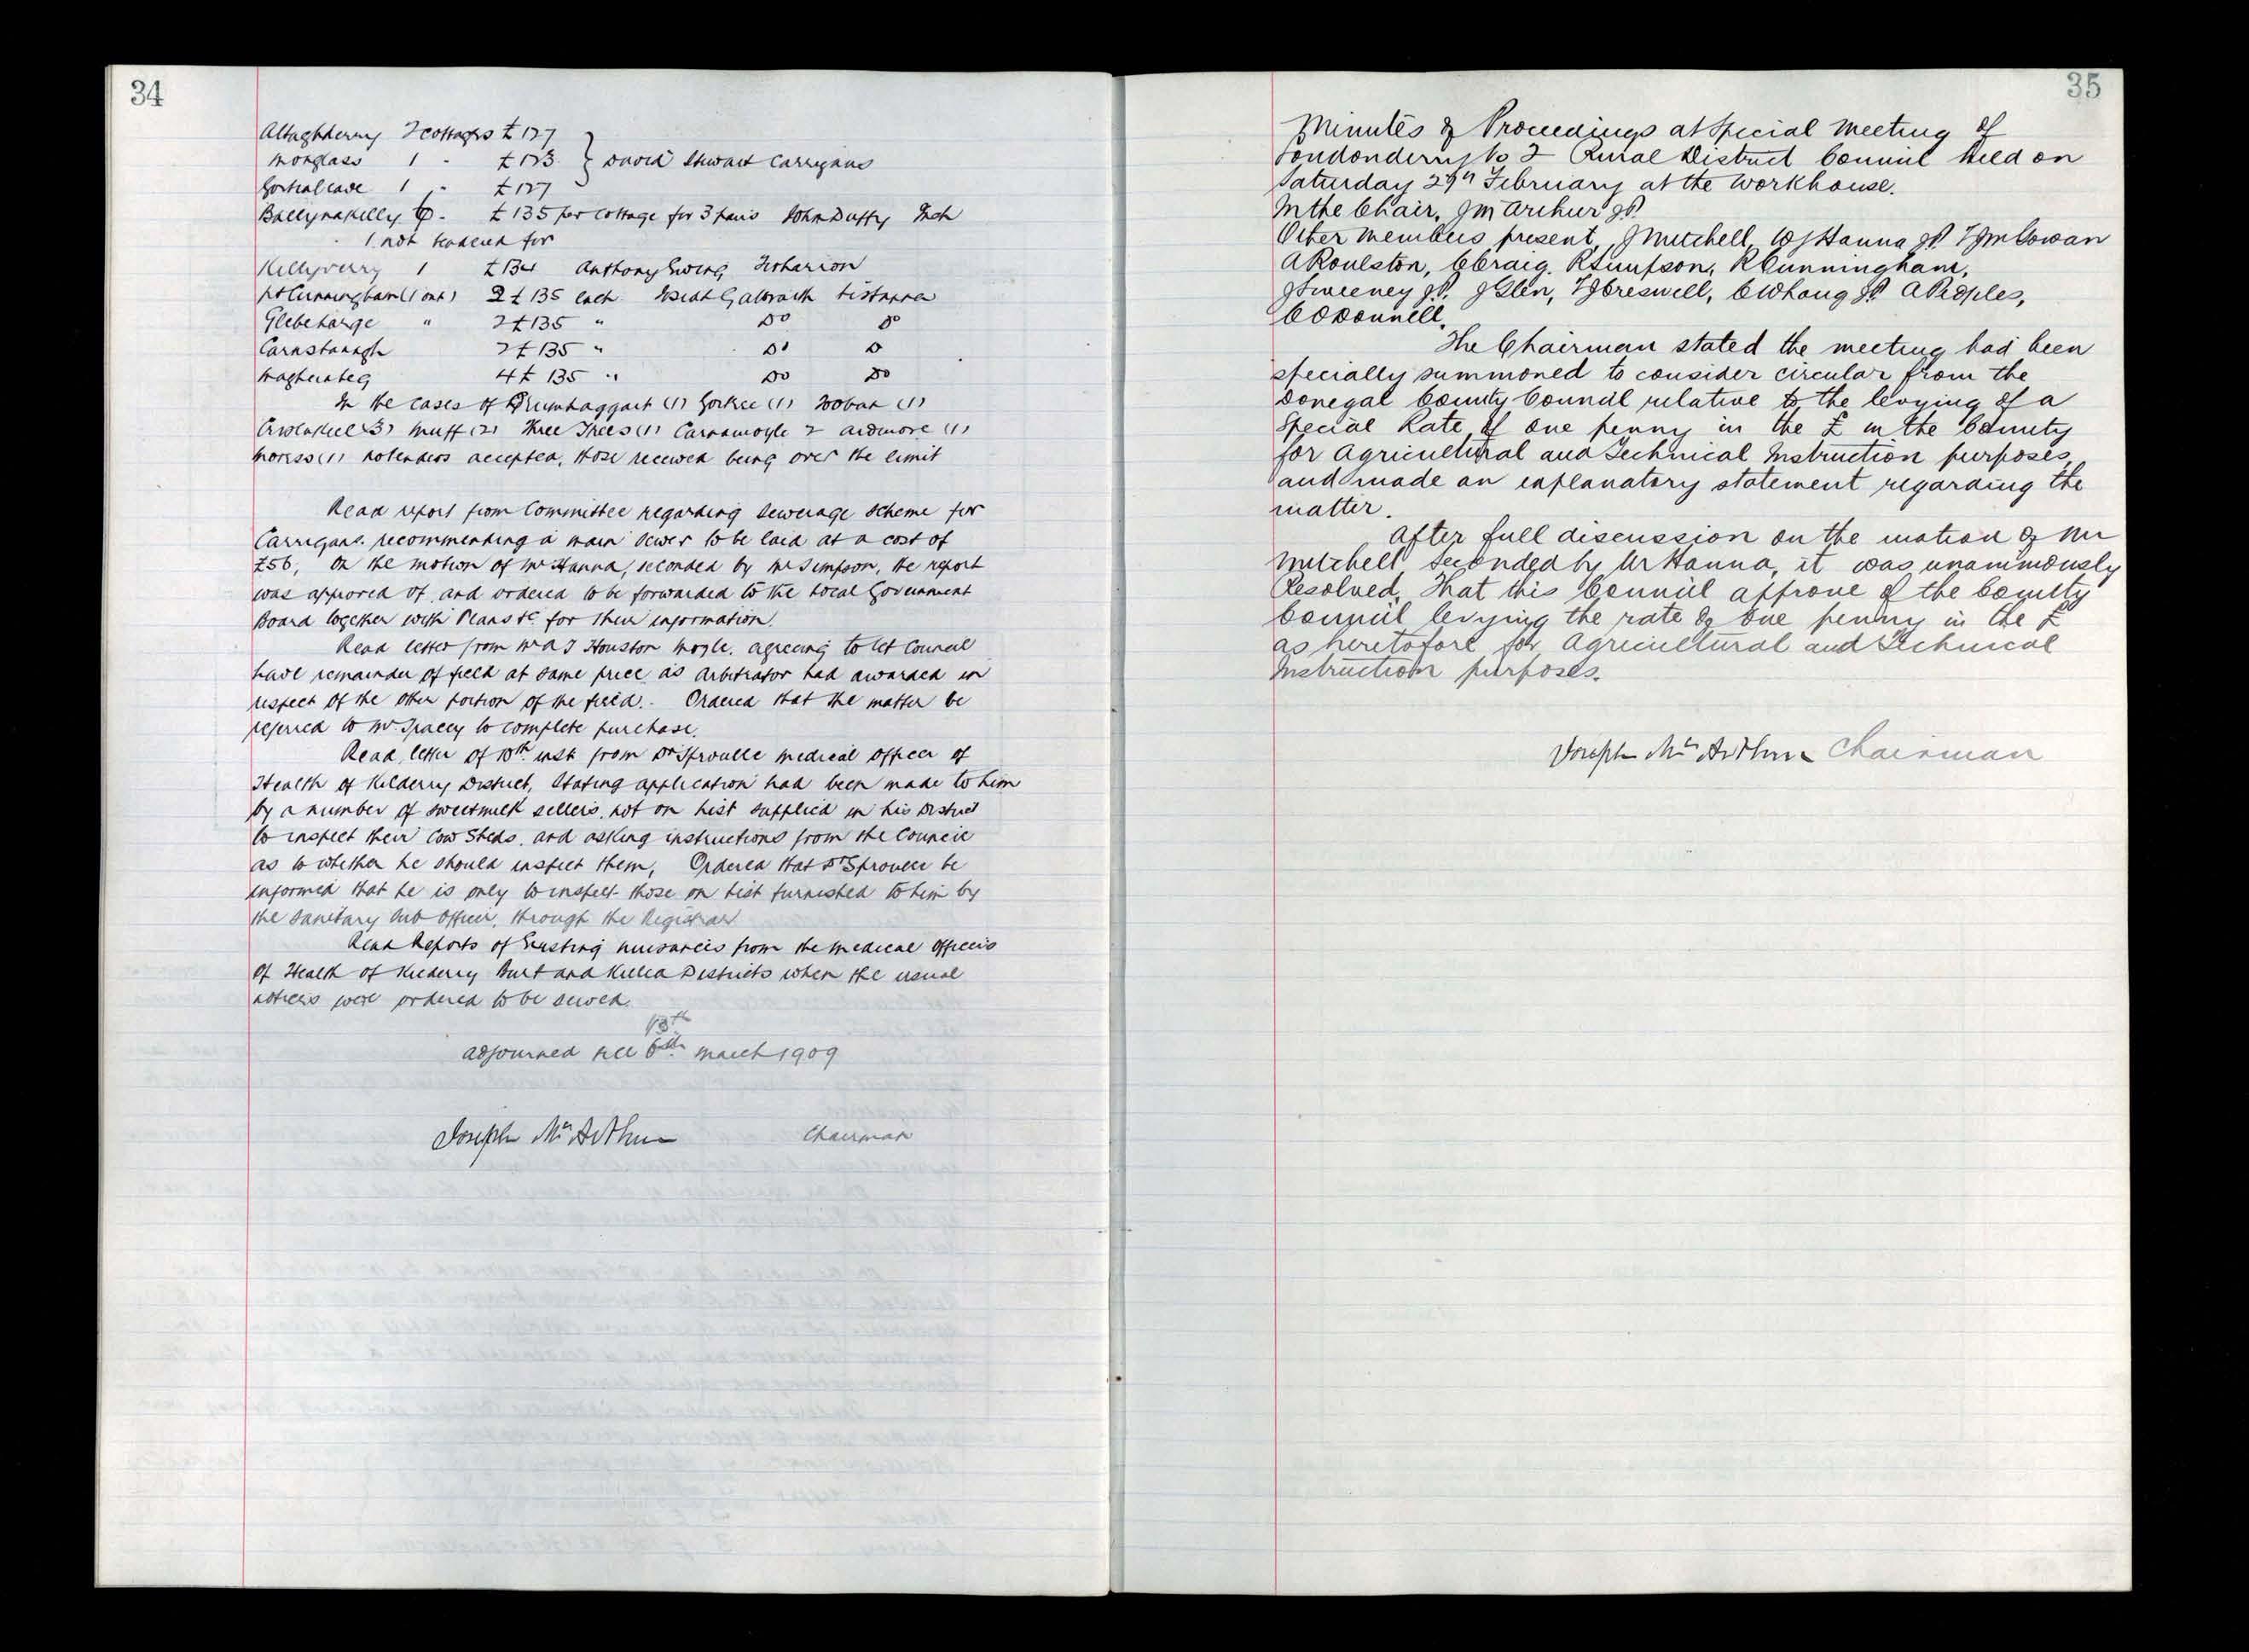 34
Altaghderry 2 cottages £127
Monglass 1 " £123 } David Stewart Carrigans
Gortinleave 1 " £127
Ballynakelly 6 - £135 per cottage for 3 pairs John Duffy Inch
1 not tendered for
Killyverry 1 £134 Anthony Ewing
Ft Cunningham (1 ont) 2 £135 each Galbraith
Glebe " 2 £135 " Do Do
Carnshannagh 2 £135 " Do Do
Magherabeg 4 £135 " Do Do
In the cases of Drumhaggart (1) (1) Tooban (1)
(3) Muff (2) Three Trees (1) Carnamoyle 2 Ardmore (1)
Moness (1) no tenders accepted, those received being over the limit
Read report from Committee regarding sewerage scheme for
Carrigans, recommending a main sewer to be laid at a cost of
£56, On the motion of Mr Hanna, seconded by Mr Simpson, the report
was approved of and ordered to be forwarded to the Local Government
Board together with Plans &c for their information.
Read letter from Mr A J Houston Moyle, agreeing to let Council
have remainder of field at same price as arbitrator had awarded in
respect of the other portion of the field. Ordered that the matter be
referred to Mr Tracey to complete purchase.
Read letter of 10th inst from Dr Sproulle Medical Officer of
Health of Kilderry District, stating application had been made to him
by a number of sweetmilk sellers, not on list supplied in his District
to inspect their Cow Sheds, and asking instructions from the Council
as to whether he should inspect them, Ordered that Dr Sproulle be
informed that he is only to inspect those on list furnished to him by
the Sanitary Sub Officer, through the Registrar
Read Reports of Existing nuisances from the Medical Officers
of Health of Kilderry Burt and Killea Districts when the usual
notices were ordered to be served.
13th
Adjourned till 6th March 1909
Joseph McArthur Chairman
35
Minutes of Proceedings at Special Meeting of
Londonderry No 2 Rural District Council held on
Saturday 27th February at the Workhouse.
In the Chair, J McArthur J.P.
Other members present, J Mitchell, W J Hanna J.P. T J McGowan
A Roulston, C Craig, R Simpson, R Cunningham,
J Sweeney J.P. J Glen, T J Creswell, C W Haug J.P. A Peoples,
C O'Donnell.
The Chairman stated the meeting had been
specially summoned to consider circular from the
Donegal County Council relative to the levying of a
Special Rate of one penny in the £ in the County
for Agricultural and Technical Instruction purposes,
and made an explanatory statement regarding the
matter.
After full discussion on the motion of Mr
Mitchell seconded by Mr Hanna, it was unanimously
Resolved, That this Council approve of the County
Council levying the rate of one penny in the £
as heretofore for Agricultural and Technical
Instruction purposes.
Joseph McArthur Chairman